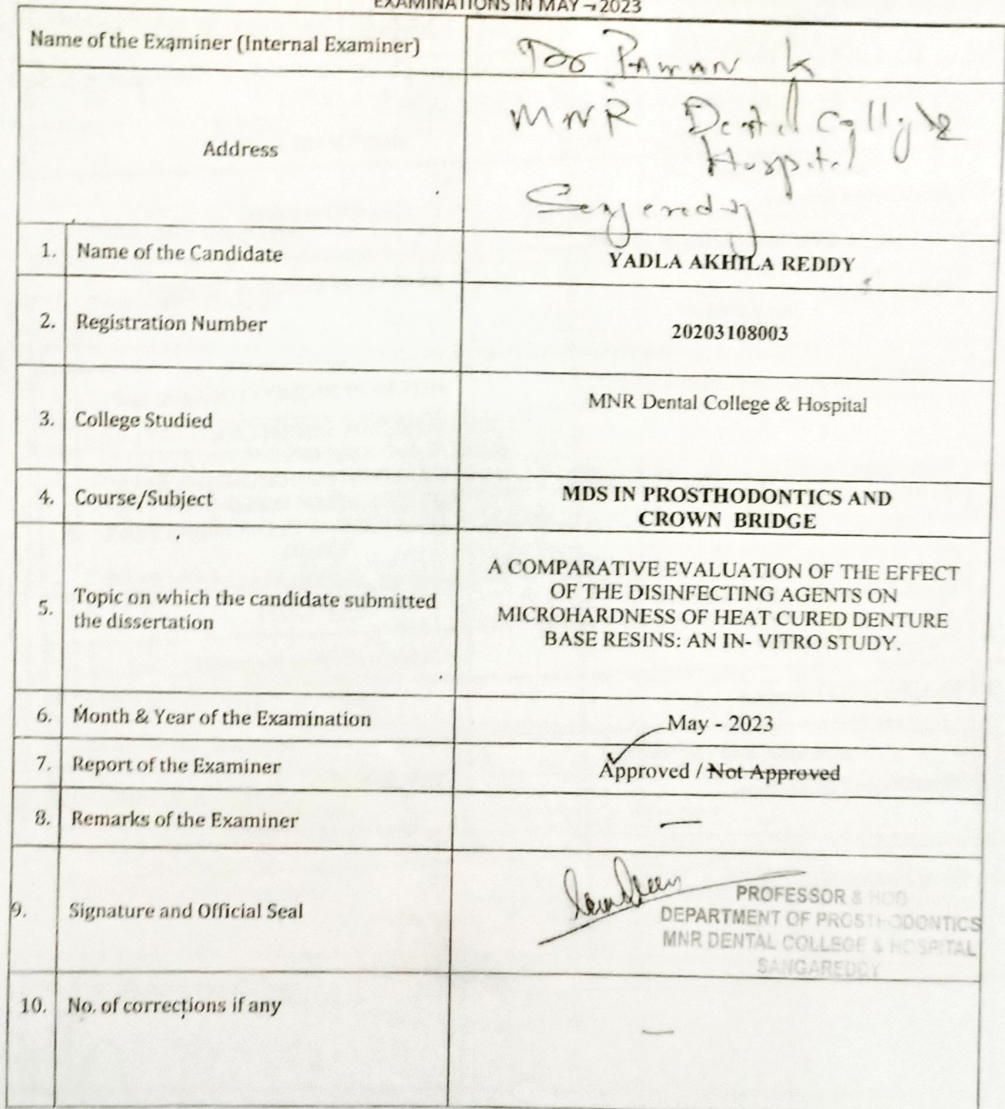 EXAMINATIONS IN MAY – 2023
Name of the Examiner (Internal Examiner)
Dr PAWAN K
Address
MNR Dental College
Hospital
Sangareddy
1. Name of the Candidate
YADLA AKHILA REDDY
2. Registration Number
20203108003
3. College Studied
MNR Dental College & Hospital
4. Course/Subject
MDS IN PROSTHODONTICS AND
CROWN BRIDGE
5. Topic on which the candidate submitted
the dissertation
A COMPARATIVE EVALUATION OF THE EFFECT
OF THE DISINFECTING AGENTS ON
MICROHARDNESS OF HEAT CURED DENTURE
BASE RESINS: AN IN- VITRO STUDY.
6. Month & Year of the Examination
May - 2023
7. Report of the Examiner
Approved / Not Approved
8. Remarks of the Examiner
—
9. Signature and Official Seal
PROFESSOR & HOD
DEPARTMENT OF PROSTHODONTICS
MNR DENTAL COLLEGE & HOSPITAL
SANGAREDDY
10. No. of corrections if any
—